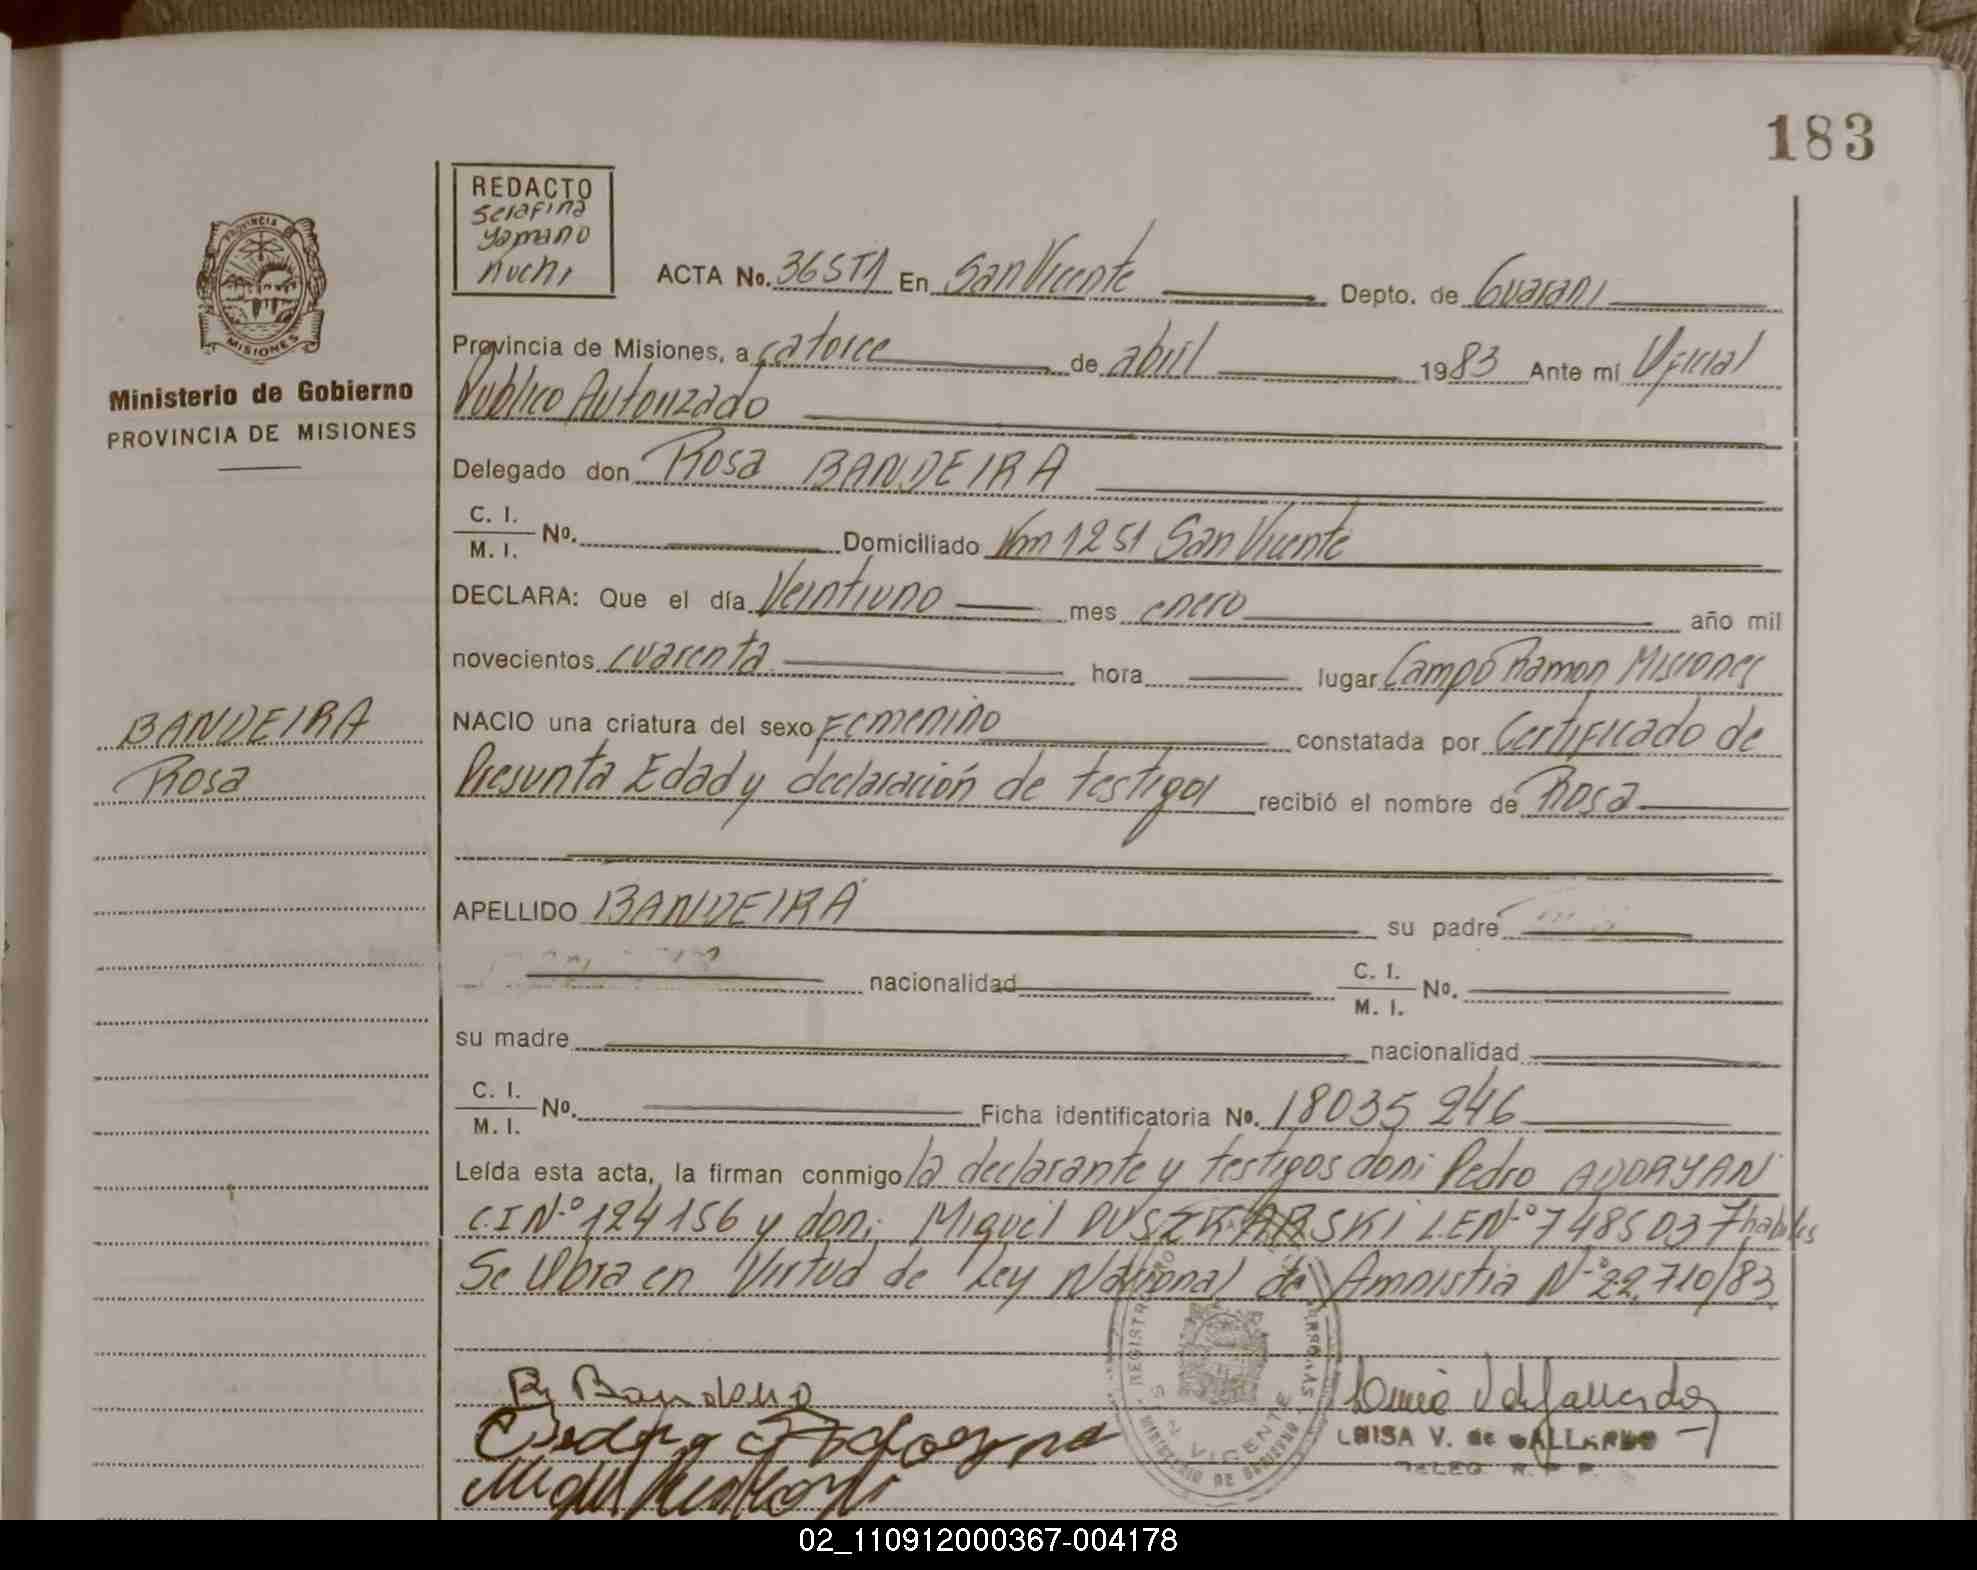 183
REDACTO
Serafina
Yamano
nuchi
PROVINCIA
MISIONES
Ministerio de Gobierno
PROVINCIA DE MISIONES
ACTA No. 36 ST1 En San Vicente Depto. de Guarani
Provincia de Misiones, a catorce de abril 1983 Ante mí Oficial
Publico Autorizado
Delegado don Rosa BANDEIRA
C. I.
M. I. No. Domiciliado Km 1251 San Vicente
DECLARA: Que el día Veintiuno mes enero año mil
novecientos cuarenta hora lugar Campo Ramon Misiones
NACIO una criatura del sexo Femenino constatada por Certificado de
Presunta Edad y declaración de testigos recibió el nombre de Rosa
BANDEIRA
Rosa
APELLIDO BANDEIRA su padre
nacionalidad C. I.
M. I. No.
su madre nacionalidad
C. I.
M. I. No. Ficha identificatoria No. 18035246
Leída esta acta, la firman conmigo la declarante y testigos don: Pedro ADORYAN
C.I N.º 124156 y don: Miguel L.E N.º 7485037 habiles
Se Obra en Virtud de Ley Nacional de Amnistia N.º 22.710/83
R Bandera
LUISA V. de GALLARDO
DELEG. R. P. P.
VICENTE
MINISTERIO DE GOBIERNO
02_110912000367-004178